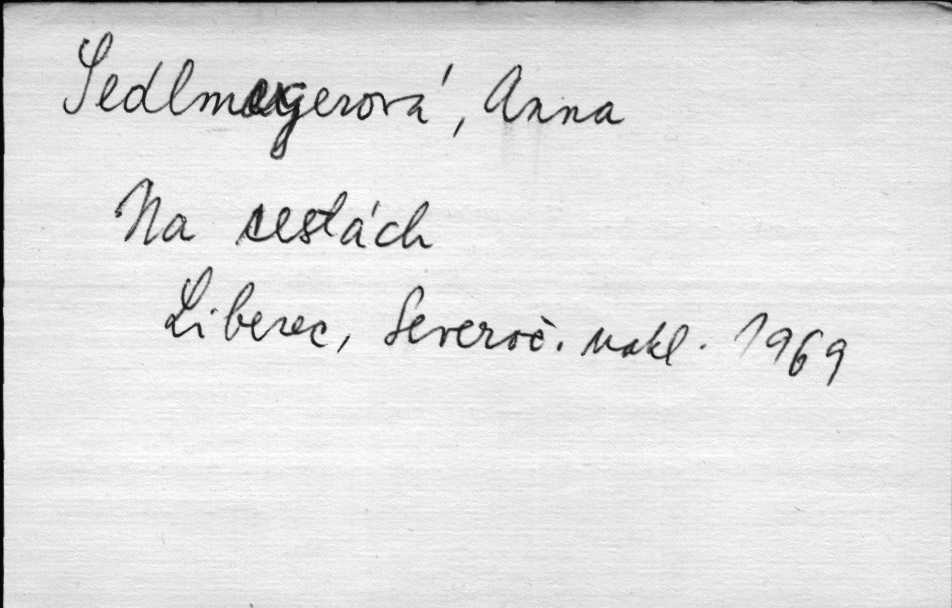 Sedlmayerová, Anna
Na cestách
Liberec, Severoč. nakl. 1969